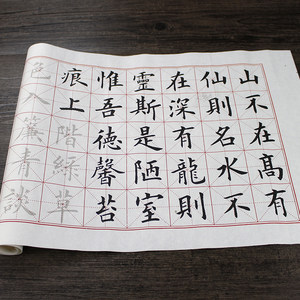 山不在高有
仙則名水不
在深有龍則
靈斯是陋室
惟吾德馨苔
痕上階綠草
色入簾青談